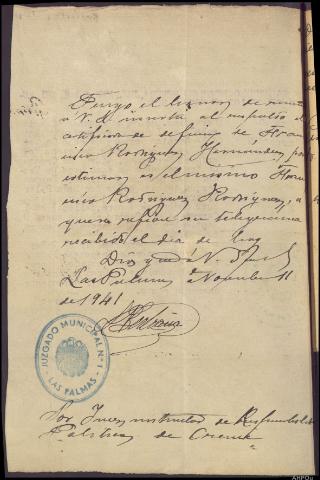 Tengo el honor de remitir
a V. S. al
certificado de defunción de Fran
cisco Rodriguez Hernández, por
estimar es el mismo Fran
cisco Rodriguez Rodriguez, a
que se refiere su telegrama
recibido el día de hoy
Dios gue a V. S.
Las Palmas a Novembre 11
de 1941
JUZGADO MUNICIPAL Nº 1
LAS PALMAS
Sor Juez instructor de
Politicas de Orense
AHPOu